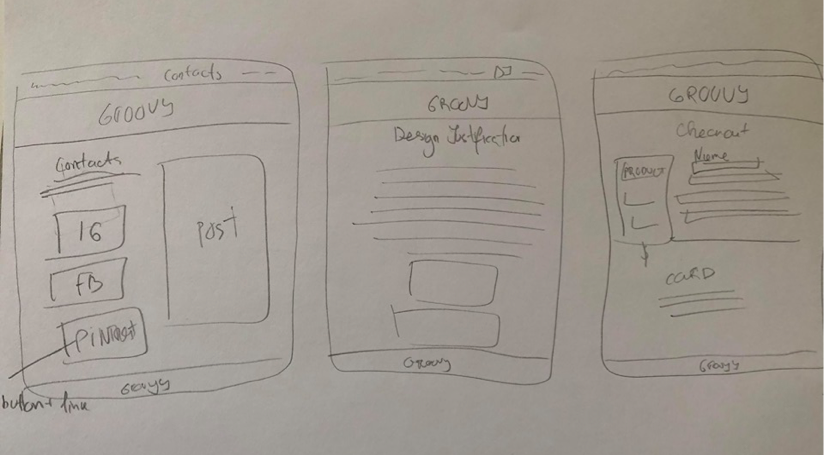 Contacts
GROOVY
Contacts
IG
FB
PiNtRest
Post
GROOVY
button + link
DJ
GROOVY
Design Justification
GROOVY
GROOVY
Checkout
PRODUCT
Name
$
CARD
GROOVY